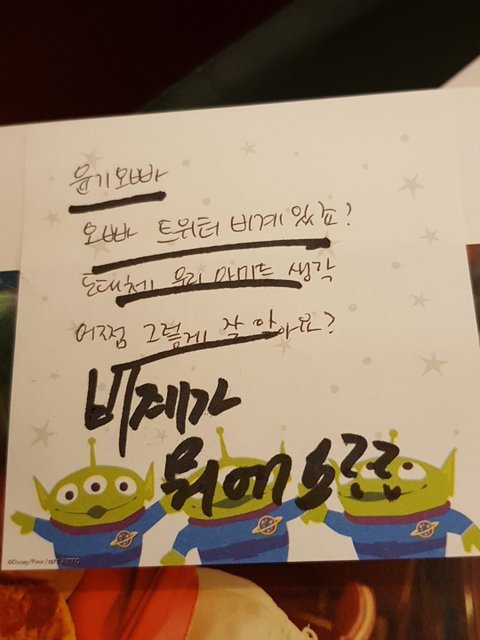 윤기오빠
오빠 트위터 비계 있죠?
도대체 우리 아미드 생각
어쩜 그렇게 잘 아아요?
비계가
뭐에요??
©Disney/Pixar